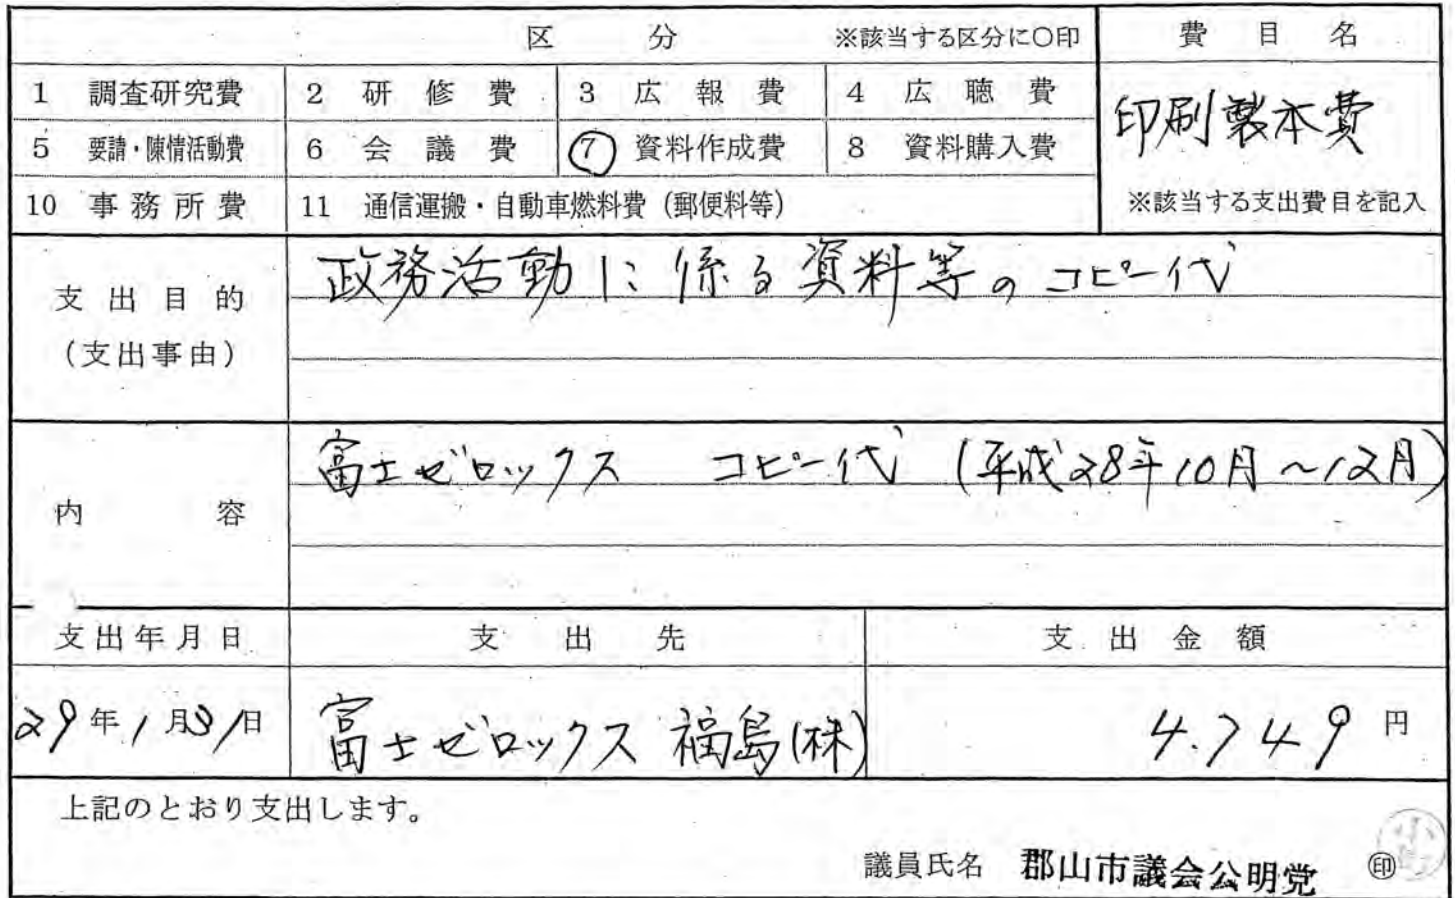 区分 ※該当する区分に〇印 費目名
1 調査研究費 2 研修費 3 広報費 4 広聴費
印刷製本費
5 要請・陳情活動費 6 会議費 ⑦ 資料作成費 8 資料購入費
10 事務所費 11 通信運搬・自動車燃料費(郵便料等) ※該当する支出費目を記入
支出目的
(支出事由)
政務活動に係る資料等のコピー代
内容
富士ゼロックス コピー代 (平成28年10月~12月)
支出年月日 支出先 支出金額
29年1月31日 富士ゼロックス福島(株) 4.749円
上記のとおり支出します。
議員氏名 郡山市議会公明党 ㊞